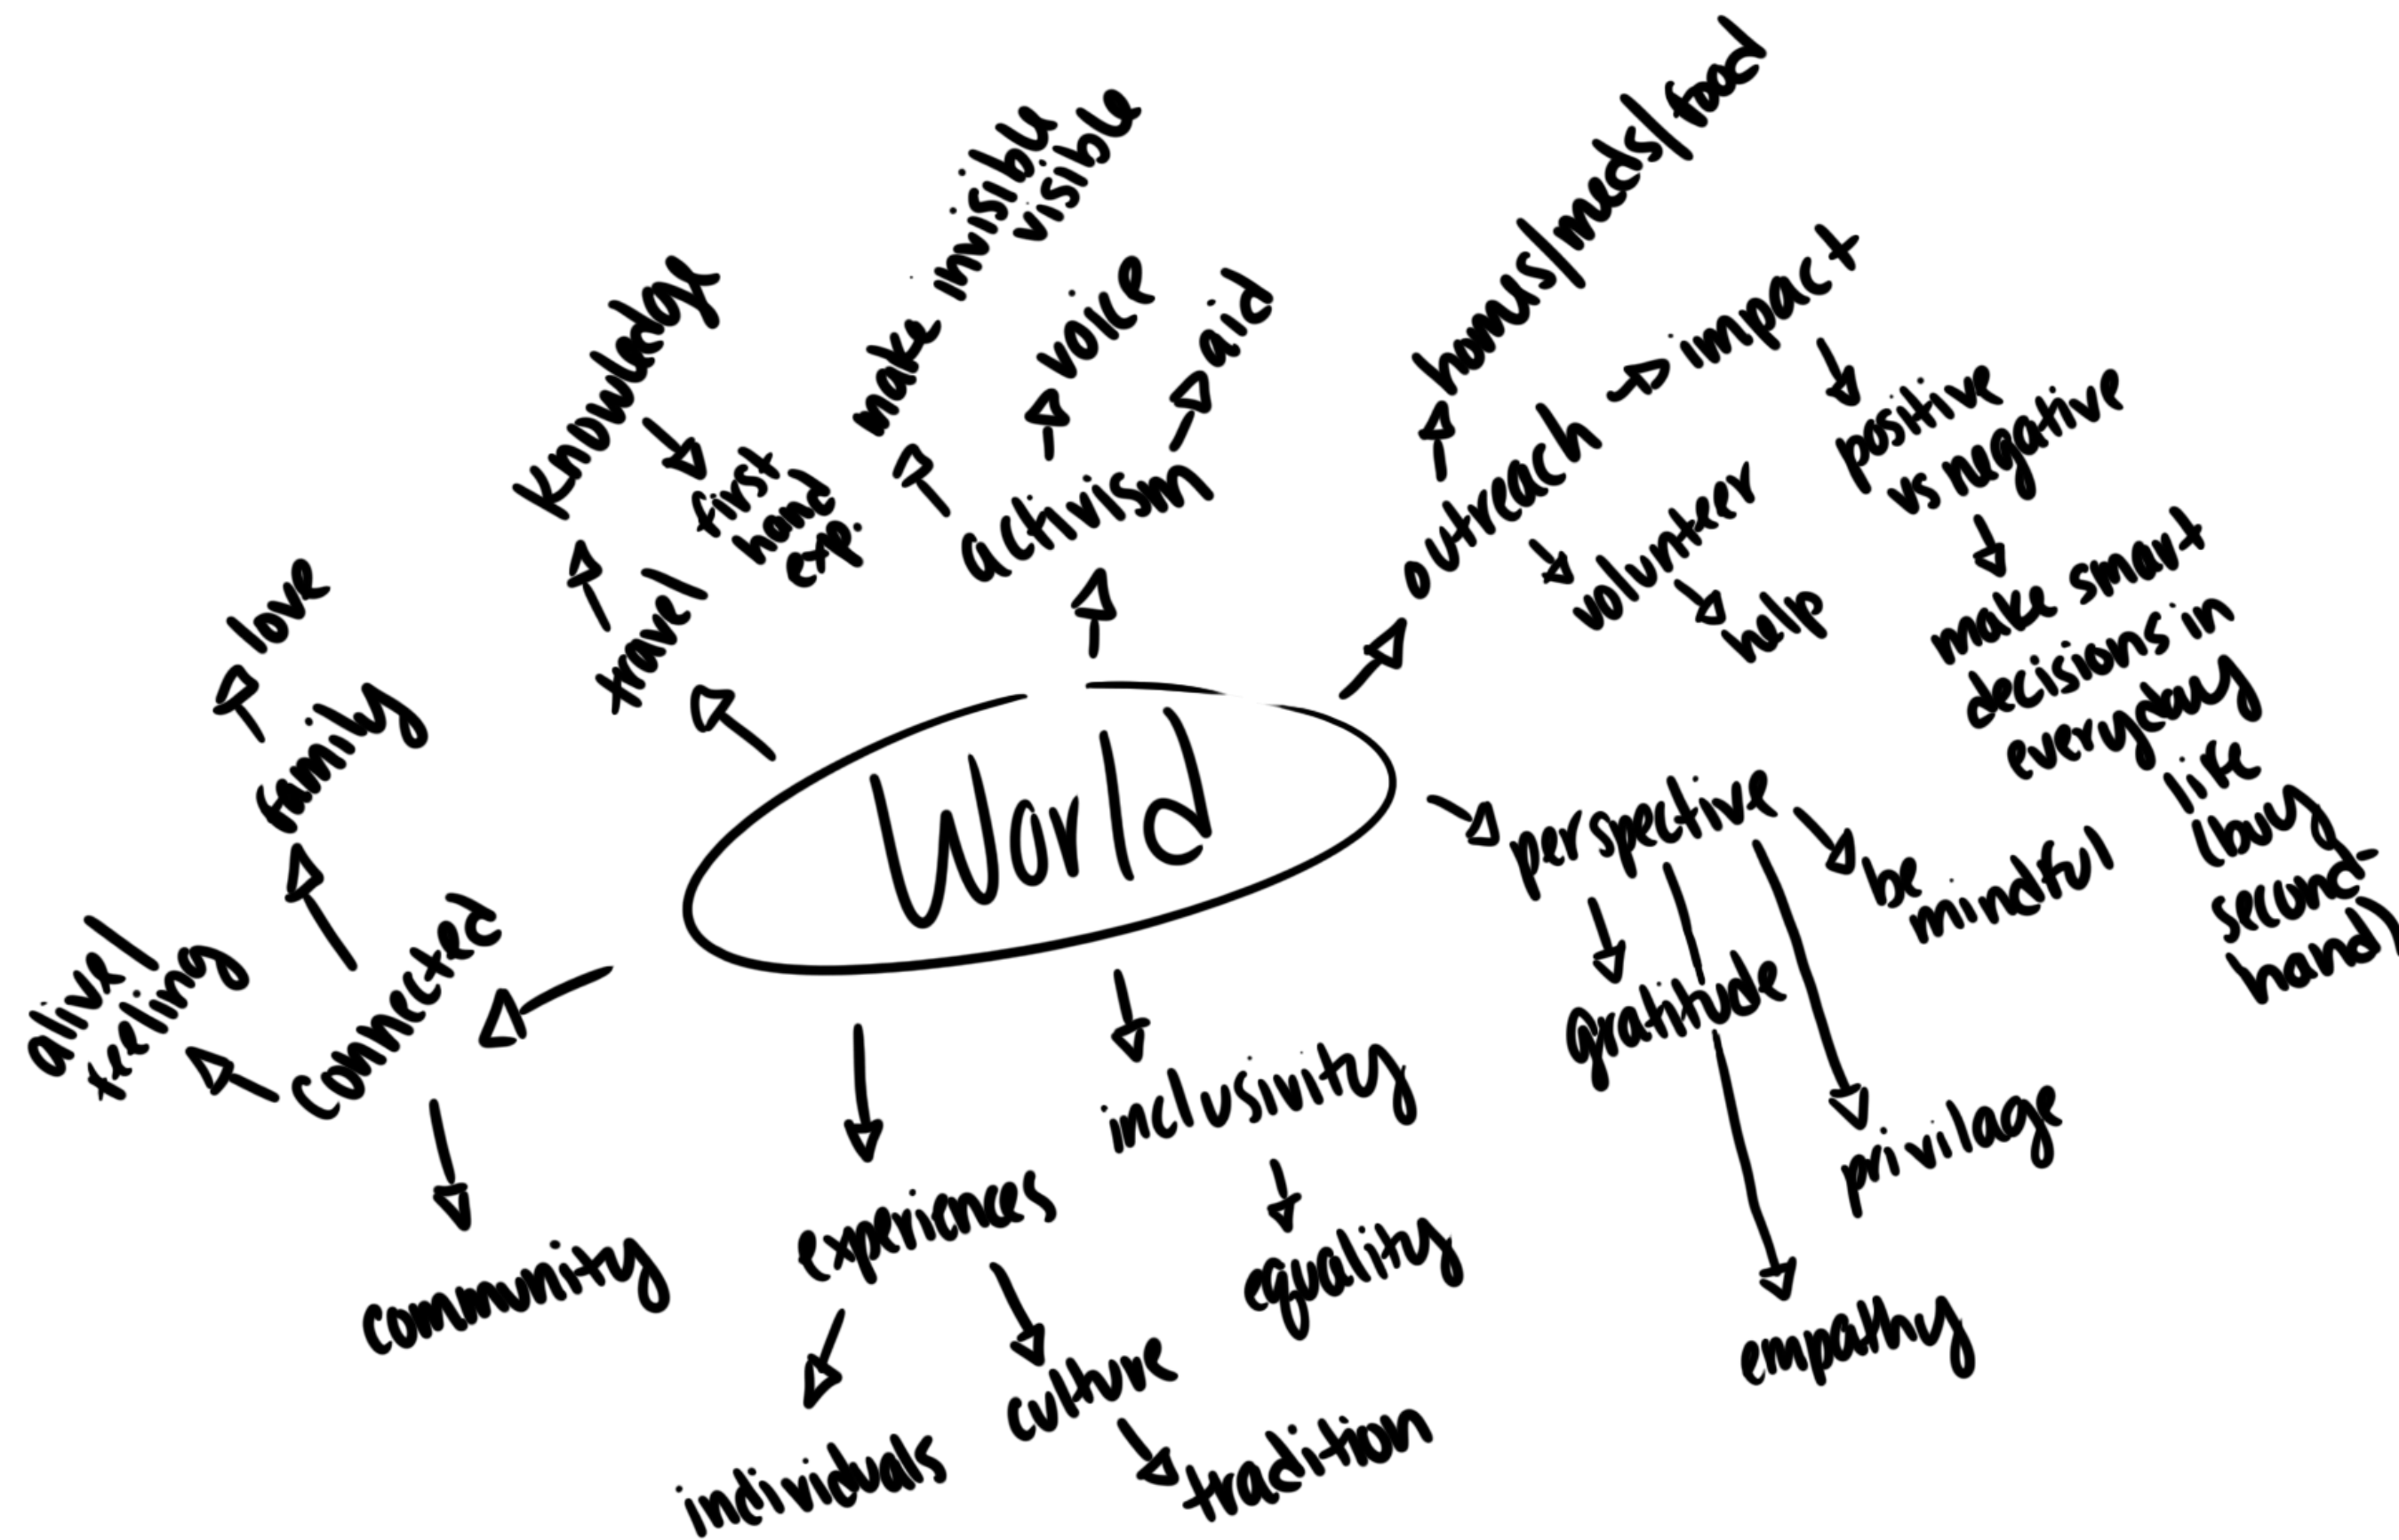 World
travel
knowledge
first
hand
exp.
activism
make invisible
visible
voice
aid
outreach
homes/meds/food
impact
positive
vs negative
make smart
decisions in
everyday
life
(buy
second-
hand)
volunteer
help
perspective
be
mindful
gratitude
privilage
empathy
inclusivity
equality
experiences
individuals
culture
tradition
connected
family
love
alive/
feeling
community